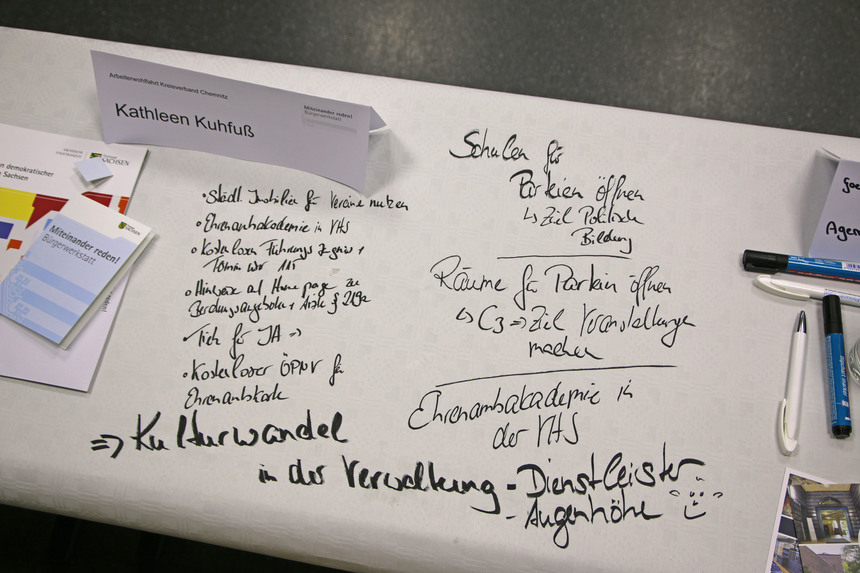 Arbeiterwohlfahrt Kreisverband Chemnitz
Kathleen Kuhfuß
Miteinander reden!
Bürgerwerkstatt
SACHSEN
n demokratischer
Sachsen
SACHSEN
Miteinander reden!
Bürgerwerkstatt
• Städt. Immobilien für Vereine nutzen
• Ehrenamtsakademie in VHS
• Kostenloses Führungszeugnis +
Termin
• Hinweise auf Homepage zu
Beratungsangeboten +
für JA ⇒
• Kostenloser ÖPNV für
Ehrenamtskarte
⇒ Kulturwandel
in der Verwaltung - Dienstleister
- Augenhöhe
Schulen für
Parteien öffnen
↳ Ziel Politische
Bildung
Räume für Parteien öffnen
↳ C3 ⇒ Ziel Veranstaltungen
machen
Ehrenamtsakademie in
der VHS
Agen